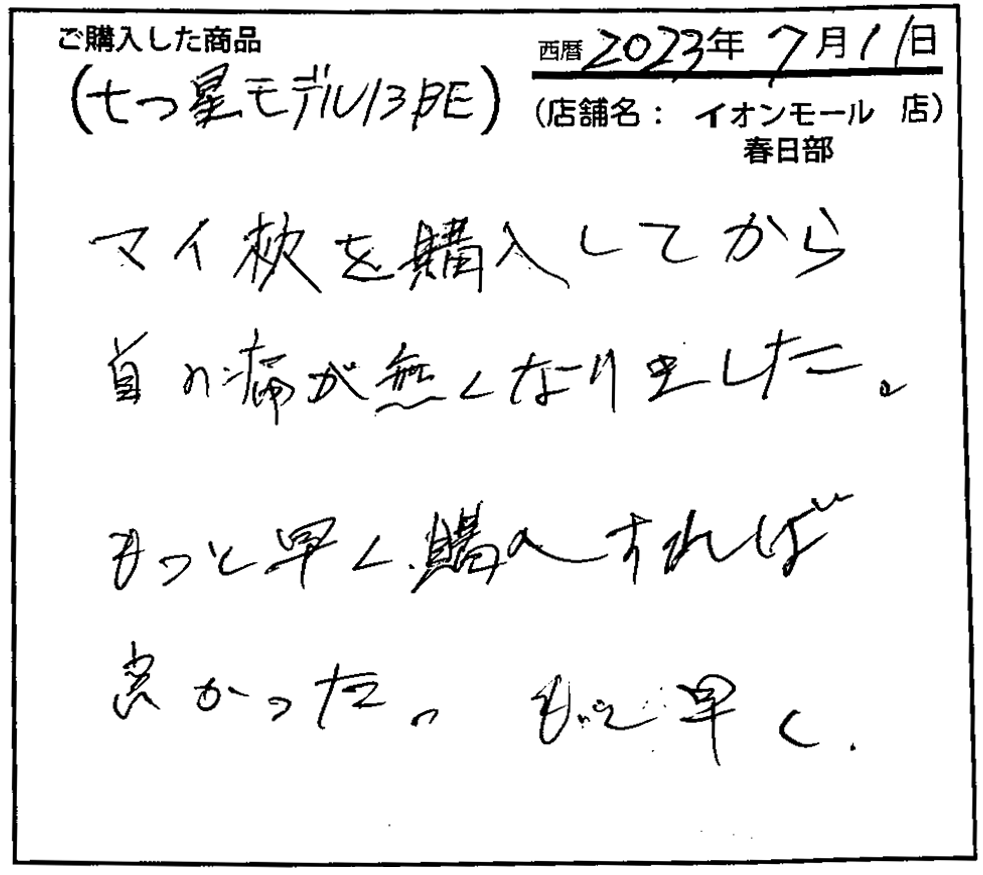 ご購入した商品
西暦 2023年 7月11日
(七つ星モデル13βE)
(店舗名: イオンモール 店)
春日部
マイ枕を購入してから
首の痛が無くなりました。
もっと早く購入すれば
良かった。もっと早く.